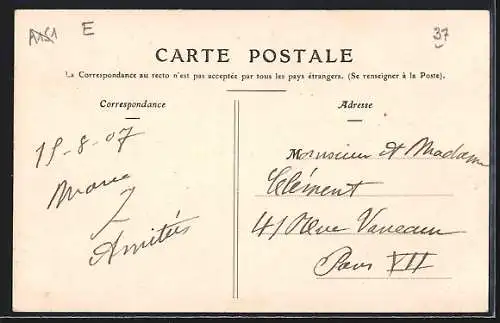 A151 E
37
CARTE POSTALE
La Correspondance au recto n'est pas acceptée par tous les pays étrangers. (Se renseigner à la Poste).
Correspondance
15-8-07
Amitiés
Adresse
Monsieur et Madame
Clément
41 Rue Vaneau
Paris VII